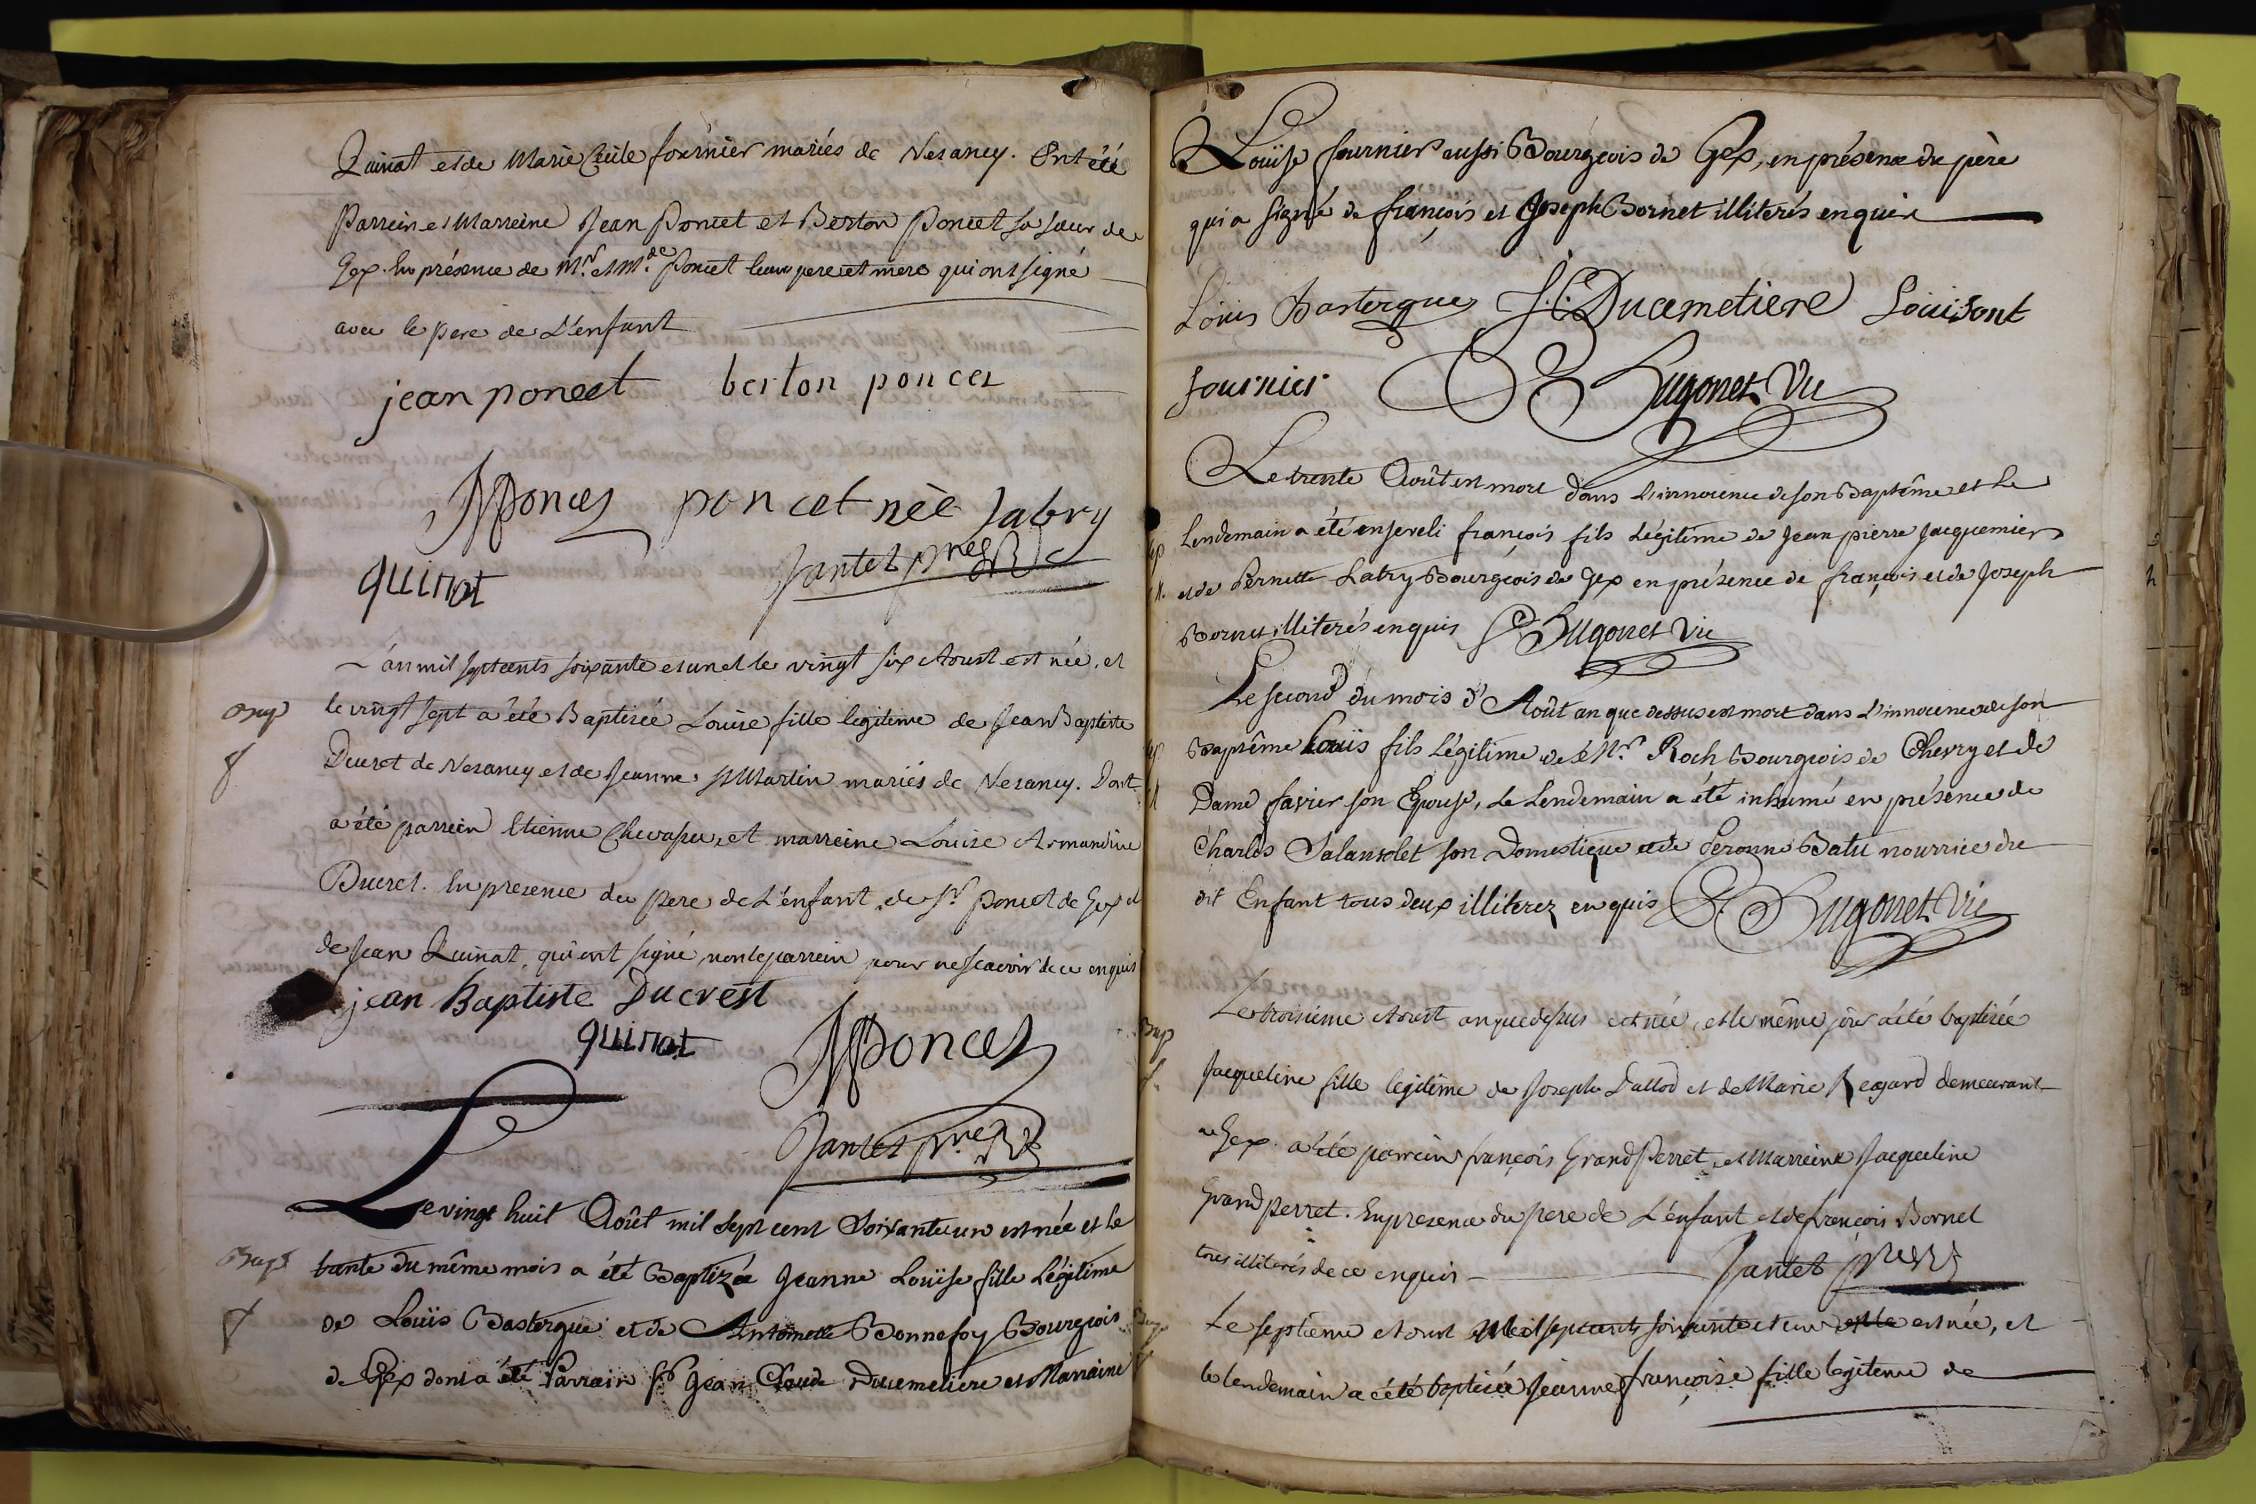 Quinat et de Marie Cecile fournier mariés de Vesancy. Ont été
Parrein et Marreine Jean Poncet et Berton Poncet sa sœur de
Gex. En présence de Mr. et Mde. Poncet leurs pere et mere qui ont signé
avec le pere de L'enfant
jean poncet berton poncet
Poncet poncet née fabry
quinat Jantet
L'an mil sept cents soixante et un et le vingt six Aoust est née, et
Bap le vingt sept a été Baptizée Louise fille legitime de Jean Baptiste
f Ducret de Vesancy et de Jeanne Martin mariés de Vesancy. Dont
a été parrein Etienne et marreine Louise Armandine
Ducret. En presence du Pere de L'enfant, de Sr. Poncet de Gex et
de Jean Quinat, qui ont signé, non le parrein pour ne scavoir de ce enquis
jean Baptiste Ducrest
quinat Poncet
Jantet
Le vingt huit Août mil sept cent Soixante un est née et le
Bap trente du même mois a été Baptizée Jeanne Louïse fille Légitime
f de Louïs Bastergue et de Antoinette Bonnefoy Bourgeois
de Gex dont a été Parrain Sr Jean Claude Ducemetiere et Marraine
Louïse fournier aussi Bourgeois de Gex, en présence du père
qui a signé de françois et Joseph Bornet illiterés enquis
Louis Bastergue J. C. Ducemetiere Louison
fournier Hugonet Vic
Le trente Août est mort dans L'innocence de son Baptême et Le
Lendemain a été enseveli françois fils Légitime de Jean pierre Jacquemier
et de Pernette Labry Bourgeois de Gex en présence de françois et de Joseph
Bornet illiterés enquis Hugonet Vic
Le second du mois d'Août an que dessus est mort dans L'innocence de son
Baptême Louïs fils Légitime de Mr. Roch Bourgeois de Chevry et de
Dame favier son Epouse, Le Lendemain a été inhumé en présence de
Charles Salansolet son Domestique et de Peronne Batu nourrice du
dit Enfant tous deux illiterez enquis Hugonet Vic
Le troisieme Aoust an que dessus est née, et le même jour a été baptisée
Bap
Jacqueline fille legitime de Joseph Dallod et de Marie Regard demeurant
a Gex. a été parrein françois Grand Perret, et Marreine Jacqueline
Grand Perret. En presence du Pere de L'enfant et de françois Bornet
tous illiterés de ce enquis Jantet
Le septieme Aoust Mil sept cents soixante et un est née, et
le lendemain a été baptisée Jeanne françoise fille legitime de